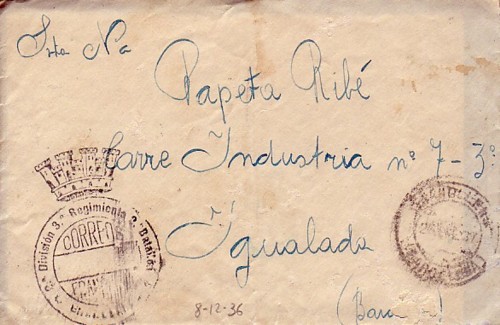 Srta Na
Papeta Ribé
Carre Industria nº 7 - 3º
Igualada
División 3.º Regimiento 2º Batallón
CORREOS
8-12-36